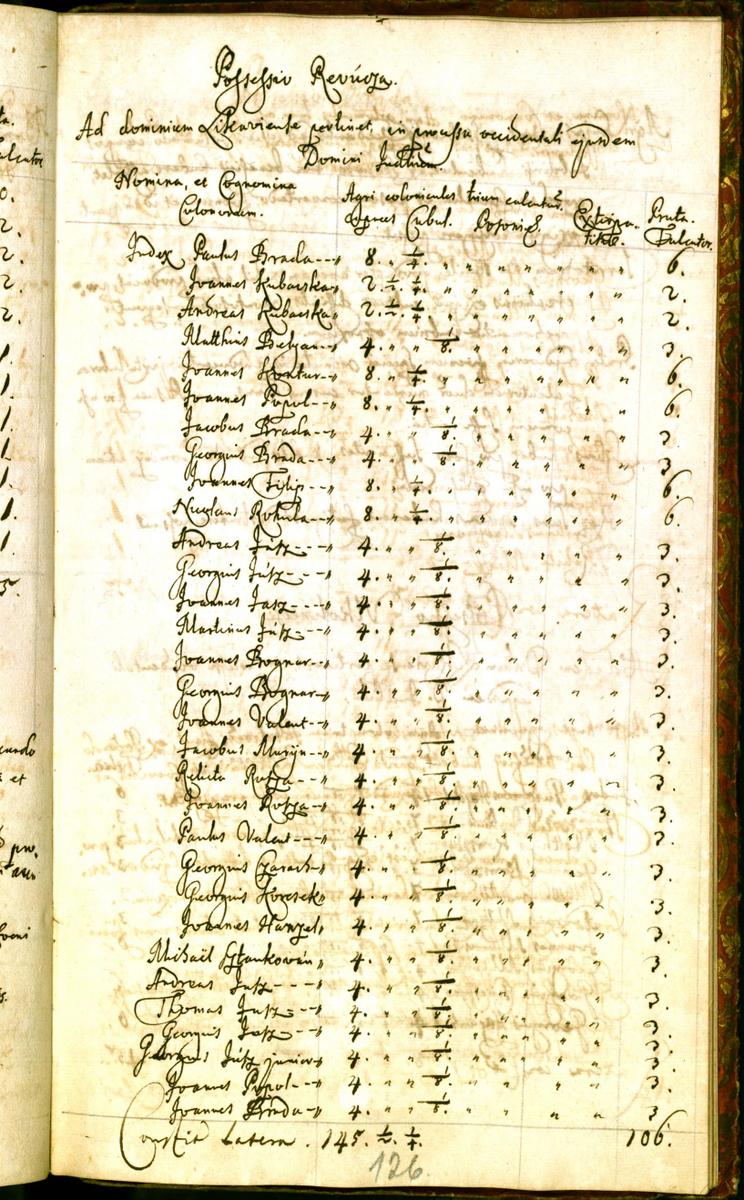 Possessio Revúcza.
Ad dominium Likaviense pertinet, in processu occidentali ejusdem
Domini Judlium.
Nomina, et Cognomina Colonorum. Agri coloniculis trium calcatur Cubul. Posonien. Extirpatitiae. Prata. Falcator.
Judex Paulus Brada---" 8. " 1/4. " " " " " " 6.
Joannes Kubacska" 2. 1/2. 1/4. " " " " " " 2.
Andreas Kubacska" 2. 1/2. 1/4. " " " " " " 2.
Matthius Belyan--" 4. " " 1/8. " " " " " 3.
Joannes Hontur--" 8. " 1/4. " " " " " " 6.
Joannes Popol---" 8. " 1/4. " " " " " " 6.
Jacobus Brada--" 4. " " 1/8. " " " " " 3.
Georgius Brada---" 4. " " 1/8. " " " " " 3.
Joannes Filip---" 8. " 1/4. " " " " " " 6.
Nicolaus Rohula--" 8. " 1/4. " " " " " " 6.
Andreas Jusz----" 4. " " 1/8. " " " " " 3.
Georgius Jusz----" 4. " " 1/8. " " " " " 3.
Joannes Jasz----" 4. " " 1/8. " " " " " 3.
Martinus Jusz----" 4. " " 1/8. " " " " " 3.
Joannes Bognar--" 4. " " 1/8. " " " " " 3.
Georgius Bognar--" 4. " " 1/8. " " " " " 3.
Joannes Valent--" 4. " " 1/8. " " " " " 3.
Jacobus Muryn--" 4. " " 1/8. " " " " " 3.
Relicta Rusza---" 4. " " 1/8. " " " " " 3.
Joannes Rusza--" 4. " " 1/8. " " " " " 3.
Paulus Valent----" 4. " " 1/8. " " " " " 3.
Georgius Czarach" 4. " " 1/8. " " " " " 3.
Georgius Horesek" 4. " " 1/8. " " " " " 3.
Joannes Hanzel" 4. " " 1/8. " " " " " 3.
Michaël 4. " " 1/8. " " " " " 3.
Andreas Jusz----" 4. " " 1/8. " " " " " 3.
Thomas Jusz----" 4. " " 1/8. " " " " " 3.
Georgius Jusz---" 4. " " 1/8. " " " " " 3.
Georgius Jusz junior" 4. " " 1/8. " " " " " 3.
Joannes Popol--" 4. " " 1/8. " " " " " 3.
Joannes Brida--" 4. " " 1/8. " " " " " 3
Constit Latera. 145. 1/2. 1/4. 106.
126.